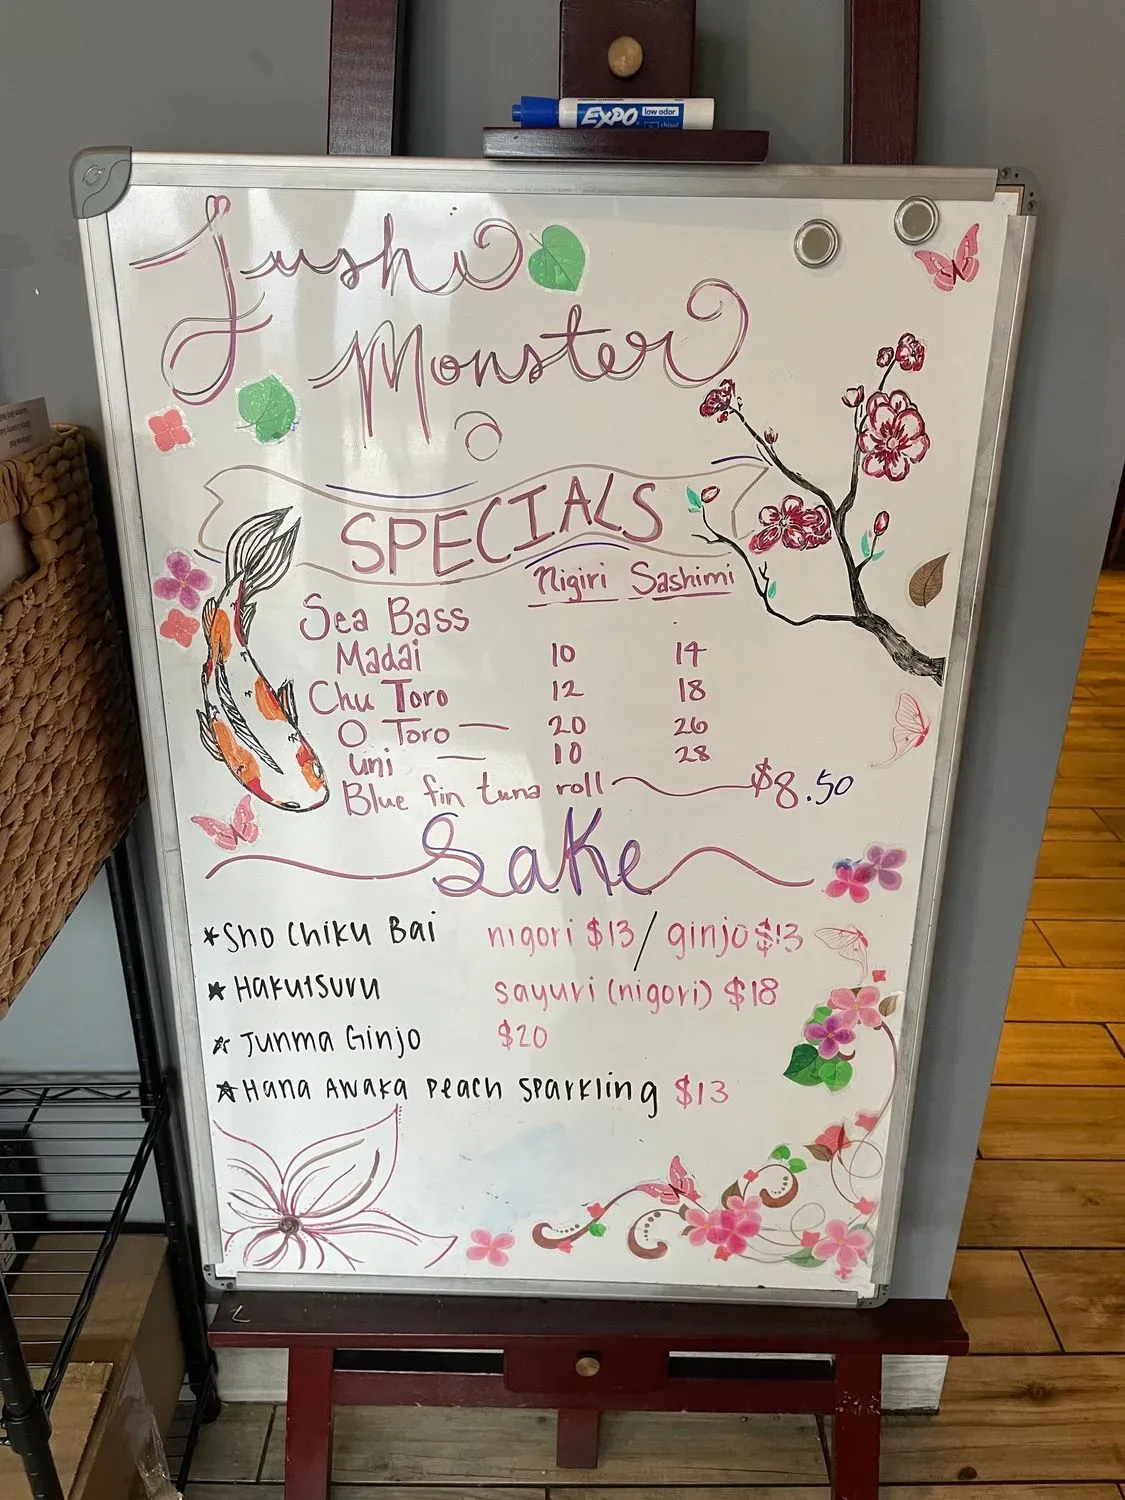 EXPO low odor
chisel
Sushi
Monster
SPECIALS
Nigiri Sashimi
Sea Bass
Madai 10 14
Chu Toro 12 18
O Toro — 20 26
Uni — 10 28
Blue fin tuna roll $8.50
Sake
★ Sho Chiku Bai nigori $13 / ginjo $13
★ Hakutsuru sayuri (nigori) $18
★ Junma Ginjo $20
★ Hana Awaka Peach Sparkling $13